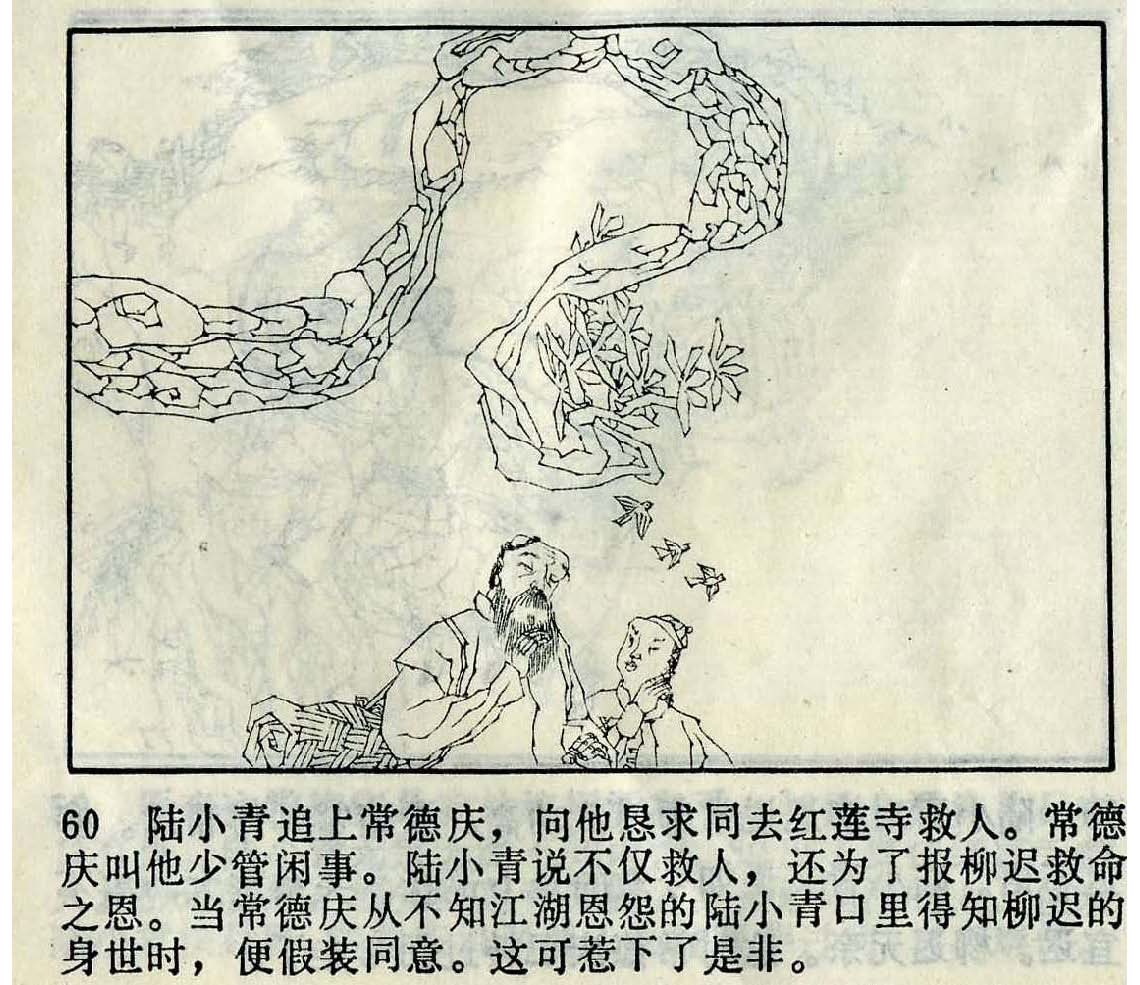 60 陆小青追上常德庆，向他恳求同去红莲寺救人。常德
庆叫他少管闲事。陆小青说不仅救人，还为了报柳迟救命
之恩。当常德庆从不知江湖恩怨的陆小青口里得知柳迟的
身世时，便假装同意。这可惹下了是非。